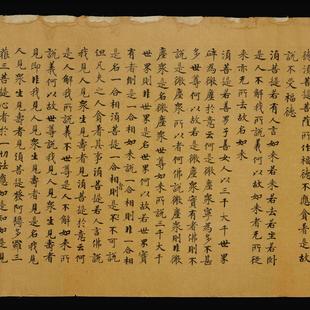 德須菩提菩薩所作福德不應貪著是故
說不受福德
須菩提若有人言如來若來若去若坐若卧
是人不解我所說義何以故如來者无所從
來亦无所去故名如來
須菩提若善男子善女人以三千大千世界
碎為微塵於意云何是微塵衆寧為多不甚
多世尊何以故若是微塵衆實有者佛則不
說是微塵衆所以者何佛說微塵衆則非微
塵衆是名微塵衆世尊如來所說三千大千
世界則非世界是名世界何以故若世界實
有者則是一合相如來說一合相則非一合相
是名一合相須菩提一合相者則是不可說
但凡夫之人貪著其事須菩提若人言佛說
我見人見衆生見壽者見須菩提於意云何
是人解我所說義不世尊是人不解如來所
說義何以故世尊說我見人見衆生見壽者
見即非我見人見衆生見壽者見是名我見
人見衆生見壽者見須菩提發阿耨多羅三
藐三菩提心者於一切法應如是知如是見